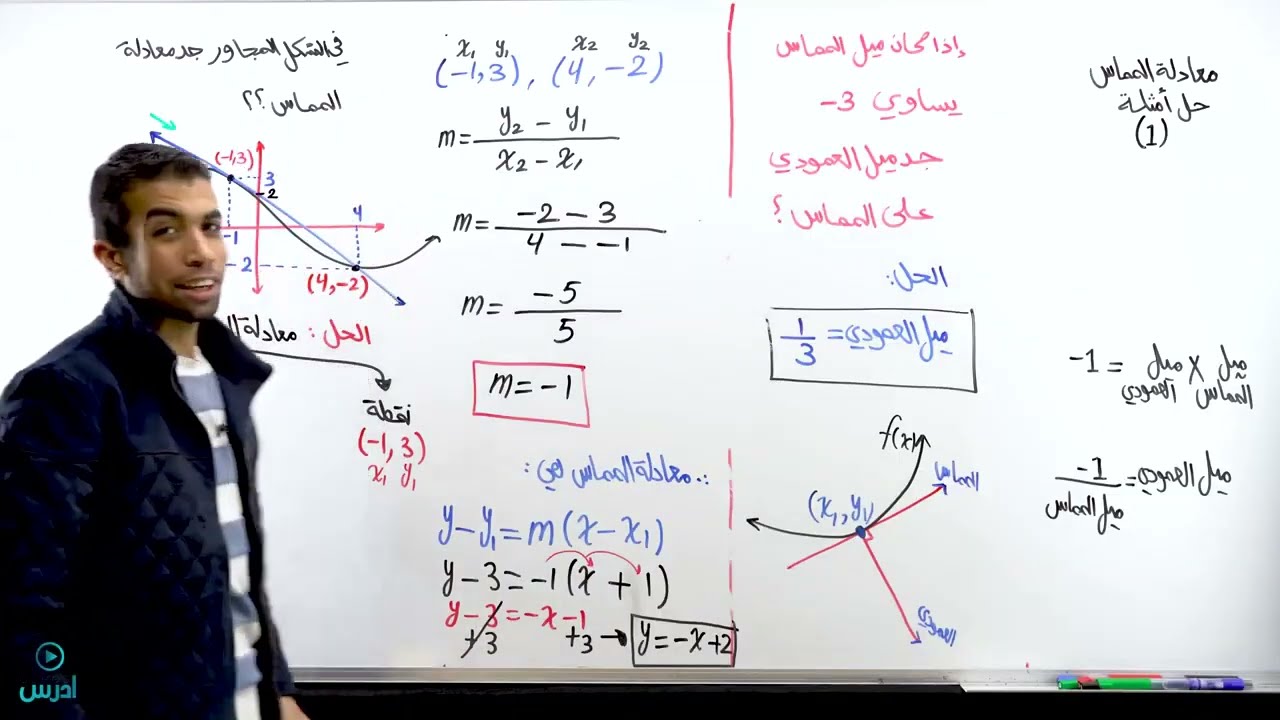 معادلة المماس
حل أمثلة
(1)
ميل المماس × ميل العمودي = 1-
ميل العمودي = -1 / ميل المماس
إذا كان ميل المماس
يساوي 3-
جد ميل العمودي
على المماس؟
الحل:
ميل العمودي = 1/3
f(x)
المماس
(x₁, y₁)
العمودي
في الشكل المجاور جد معادلة
المماس؟؟
(-1,3)
3
2
4
-1
-2
(4,-2)
الحل: معادلة
نقطة
(-1,3)
x₁ y₁
x₁ y₁ x₂ y₂
(-1,3), (4,-2)
m = y₂ - y₁ / x₂ - x₁
m = -2 - 3 / 4 - -1
m = -5 / 5
m = -1
∴ معادلة المماس هي:
y - y₁ = m(x - x₁)
y - 3 = -1(x + 1)
y - 3 = -x - 1
+3 +3 → y = -x + 2
ادرس